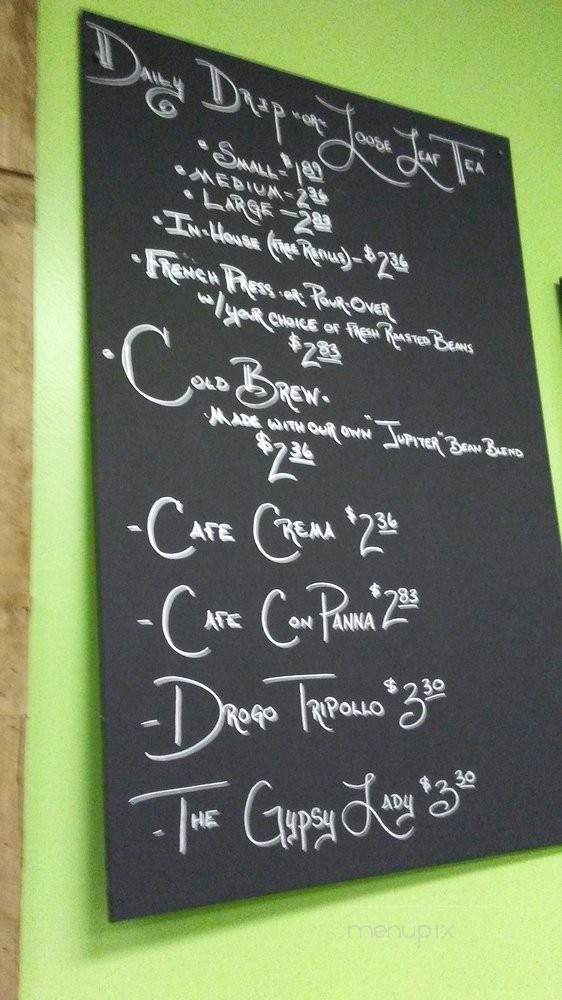 Daily Drip -or- Loose Leaf Tea
• Small - $1.89
• Medium - 2.36
• Large - 2.83
• In-House (Free Refills) - $2.36
• French Press -or- Pour-Over
w/ your choice of fresh Roasted Beans
$2.83
• Cold Brew •
• Made with our own "Jupiter" Bean Blend
$2.36
- Cafe Crema $2.36
- Cafe Con Panna $2.83
- Drogo Tripollo $3.30
- The Gypsy Lady $3.30
menupix